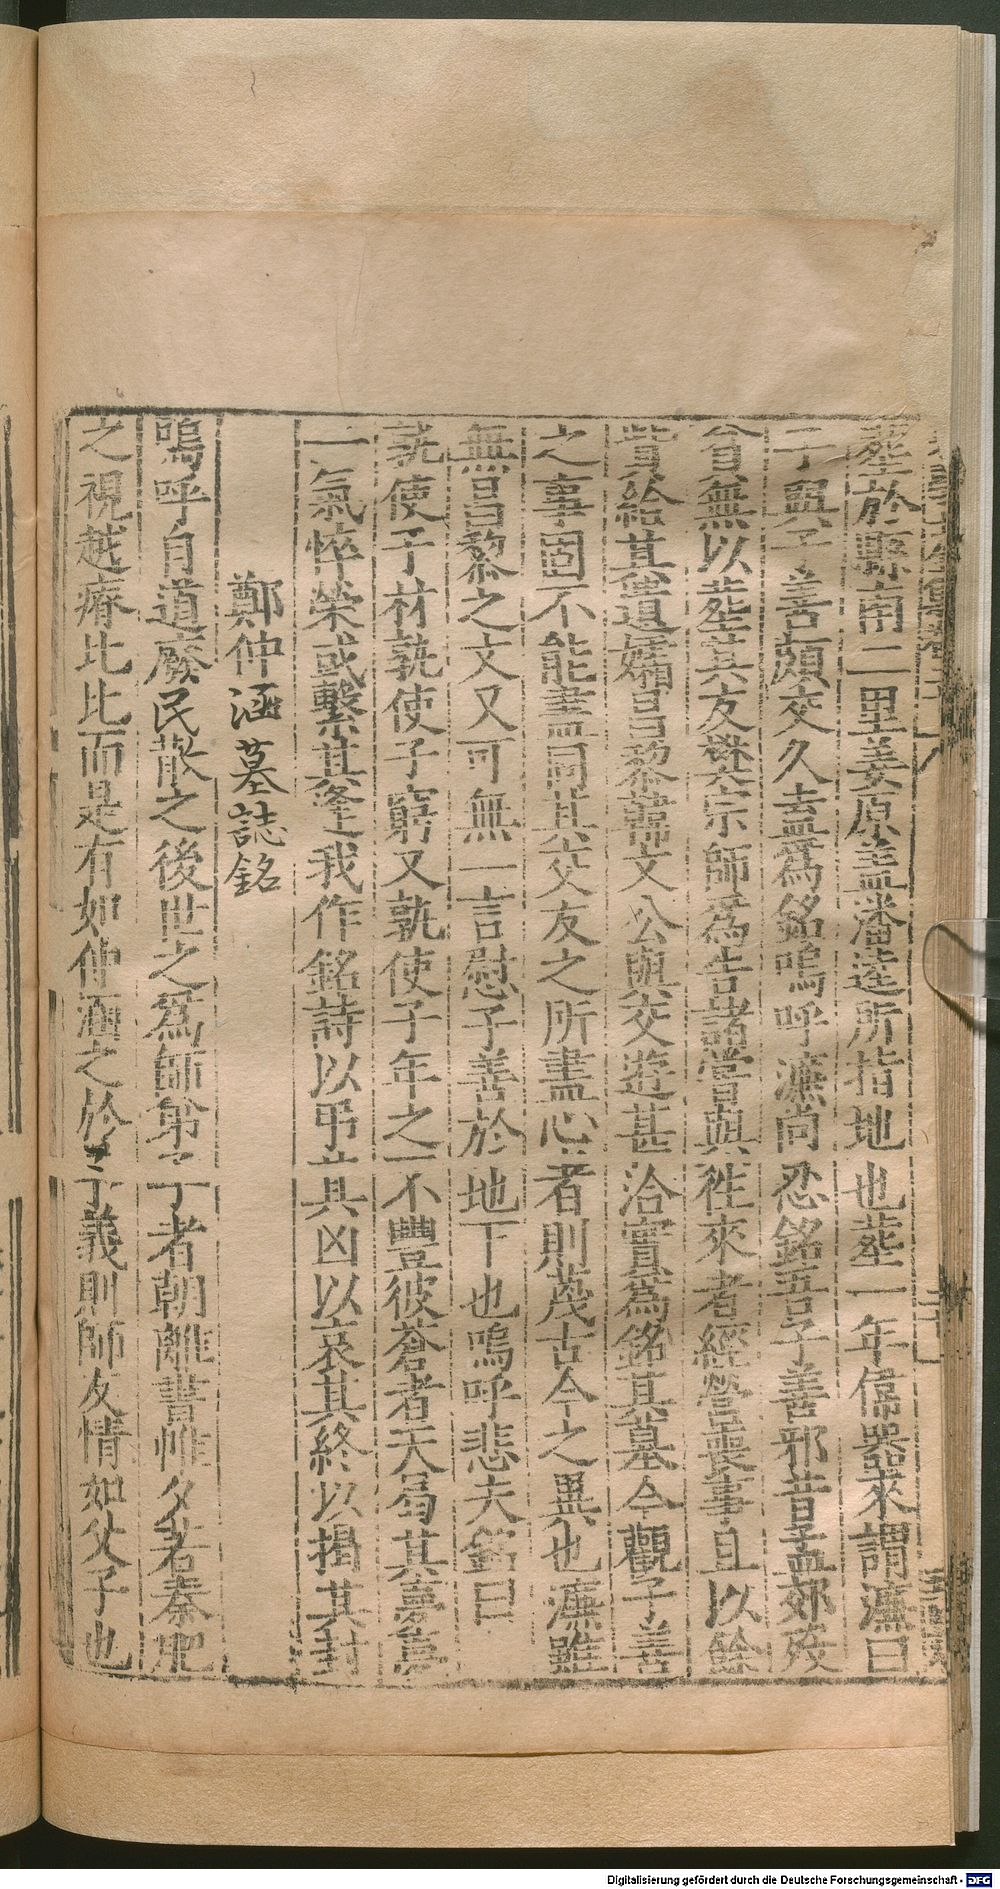 塟於縣南二里姜原盖潘逵所指地也塟一年儒器來謂濂曰
子與子善頗交久盍爲銘嗚呼濂尚忍銘吾子善邪昔孟郊殁
貧無以塟其友樊宗師爲告諸嘗與徃來者經營喪事且以餘
貲給其遺孀昌黎韓文公與交遊甚洽實爲銘其墓今觀子善
之事固不能盡同其交友之所盡心者則茂古今之異也濂雖
無昌黎之文又可無一言慰子善於地下也嗚呼悲夫銘曰
孰使子材孰使子窮又孰使子年之不豐彼蒼者天曷其夢夢
一氣悴榮或繫其逢我作銘詩以弔其凶以哀其終以揭其封
鄭仲涵墓誌銘
嗚呼自道廢民散之後世之爲師弟子者朝離書帷夕若秦肥
之視越瘠比比而是有如仲涵之於予義則師友情如父子也
Digitalisierung gefördert durch die Deutsche Forschungsgemeinschaft - DFG